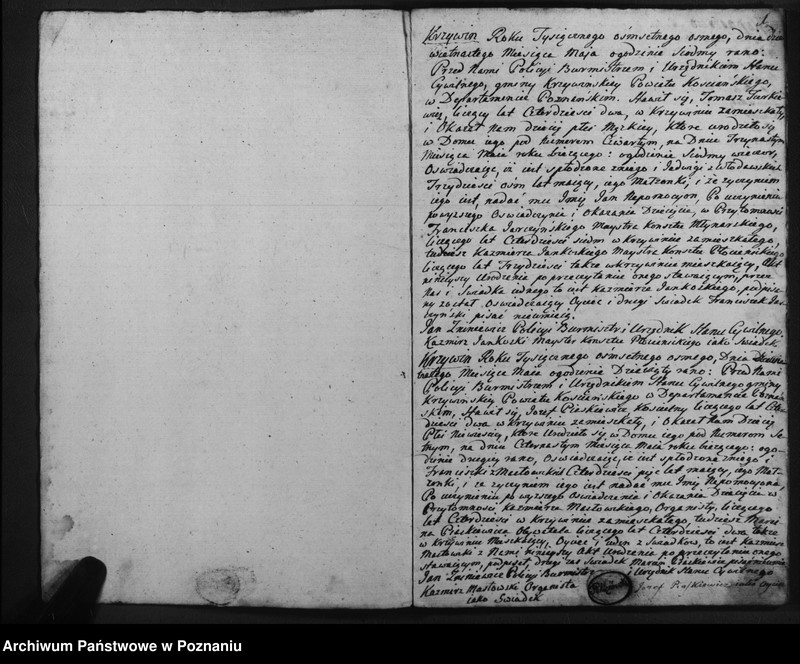 1
Krzywin Roku Tysiącznego ośmsetnego osmego, dnia
Miesiąca Maja o godzinie siodmy rano:
Przed Nami Policyi Burmistrzem i Urzędnikiem Stanu
Cywilnego, gminy Krzywinskiey Powiatu Kościańskiego,
w Departamencie Poznańskim. Stawił się, Tomasz
liczący lat Czterdzieści dwa, w Krzywiniu zamieszkały,
i Okazał Nam dziecię płci Męzkiey, które urodziło się
w Domu iego pod Numerem Czwartym, na Dniu Trzynastym
Miesiąca Maia roku bieżącego: o godzinie Siodmy wieczor,
Oswiadczaiąc, iż iest spłodzone z niego i Jadwigi z
Trzydzieści ośm lat maiący, iego Małzonki, i że życzeniem
iego iest, nadać mu Imię Jan Nepomocyn, Po uczynieniu
powyższego Oswiadczenia i Okazania Dziecięcia, w Przytomności
Franciszka Jarczyńskiego Maystra Konsztu Młynarskiego,
liczącego lat Czterdzieści siedm w Krzywiniu zamieszkałego,
tudzież Kazmierza Jankoskiego Maystra Konsztu Płocienskiego
liczącego lat Trzydzieści także w Krzywiniu mieszkaiący,
Urodzenia po przeczytaniu onego stawaiącym, przez
Nas i Swiadka iednego to iest Kazmierza Jankoskiego,
został. Oswiadczaiący Oyciec i drugi Swiadek Franciszek
pisać nieumieią.
Jan Policyi Burmistrz i Urzędnik Stanu Cywilnego.
Kazmirz Jankoski Mayster Konsztu Płocienskiego iako Swiadek
Krzywin Roku Tysiącznego ośmsetnego osmego, Dnia
Miesiąca Maia o godzinie Dziewiąty rano: Przed Nami
Policyi Burmistrzem i Urzędnikiem Stanu Cywilnego gminy
Krzywinskiey Powiatu Kosciańskiego w Departamencie
Stawił się Jozef Piaskiewicz, Kościelny liczącego lat
dwa w Krzywiniu zamieszkały, i Okazał Nam Dziecię
Płci Niewieściey, które Urodziło się w Domu iego pod Numerem
na dniu Czternastym Miesiąca Maia roku bieżącego:
drugiey rano, Oswiadczaiąc, iż iest spłodzone z niego i
Franciszki z Masłowskich Czterdzieści pięć lat maiący, iego
i że życzeniem iego iest nadać mu Imię Nepomocyna,
Po uczynieniu powyższego Oswiadczenia i Okazania Dziecięcia w
Przytomności, Kazmierza Masłowskiego, Organisty, liczącego
lat Czterdzieści w Krzywiniu zamieszkałego, tudzież
Piaskiewicza Obywatela liczącego lat Czterdzieści dwa także
w Krzywiniu Mieszkaiący, Oyciec i ieden z Swiadkow, to iest Kazmierz
Masłowski z Nami niniejszy Akt Urodzenia po przeczytaniu onego
stawaiącym, podpisał, drugi zas Swiadek Marcin Piaskiewicz
Jan Policyi Burmistrz i Urzędnik Stanu Cywilnego
Kazmirz Masłowski Organista
iako Swiadek
Jozef Piaskiewicz iako Oyciec
Archiwum Państwowe w Poznaniu